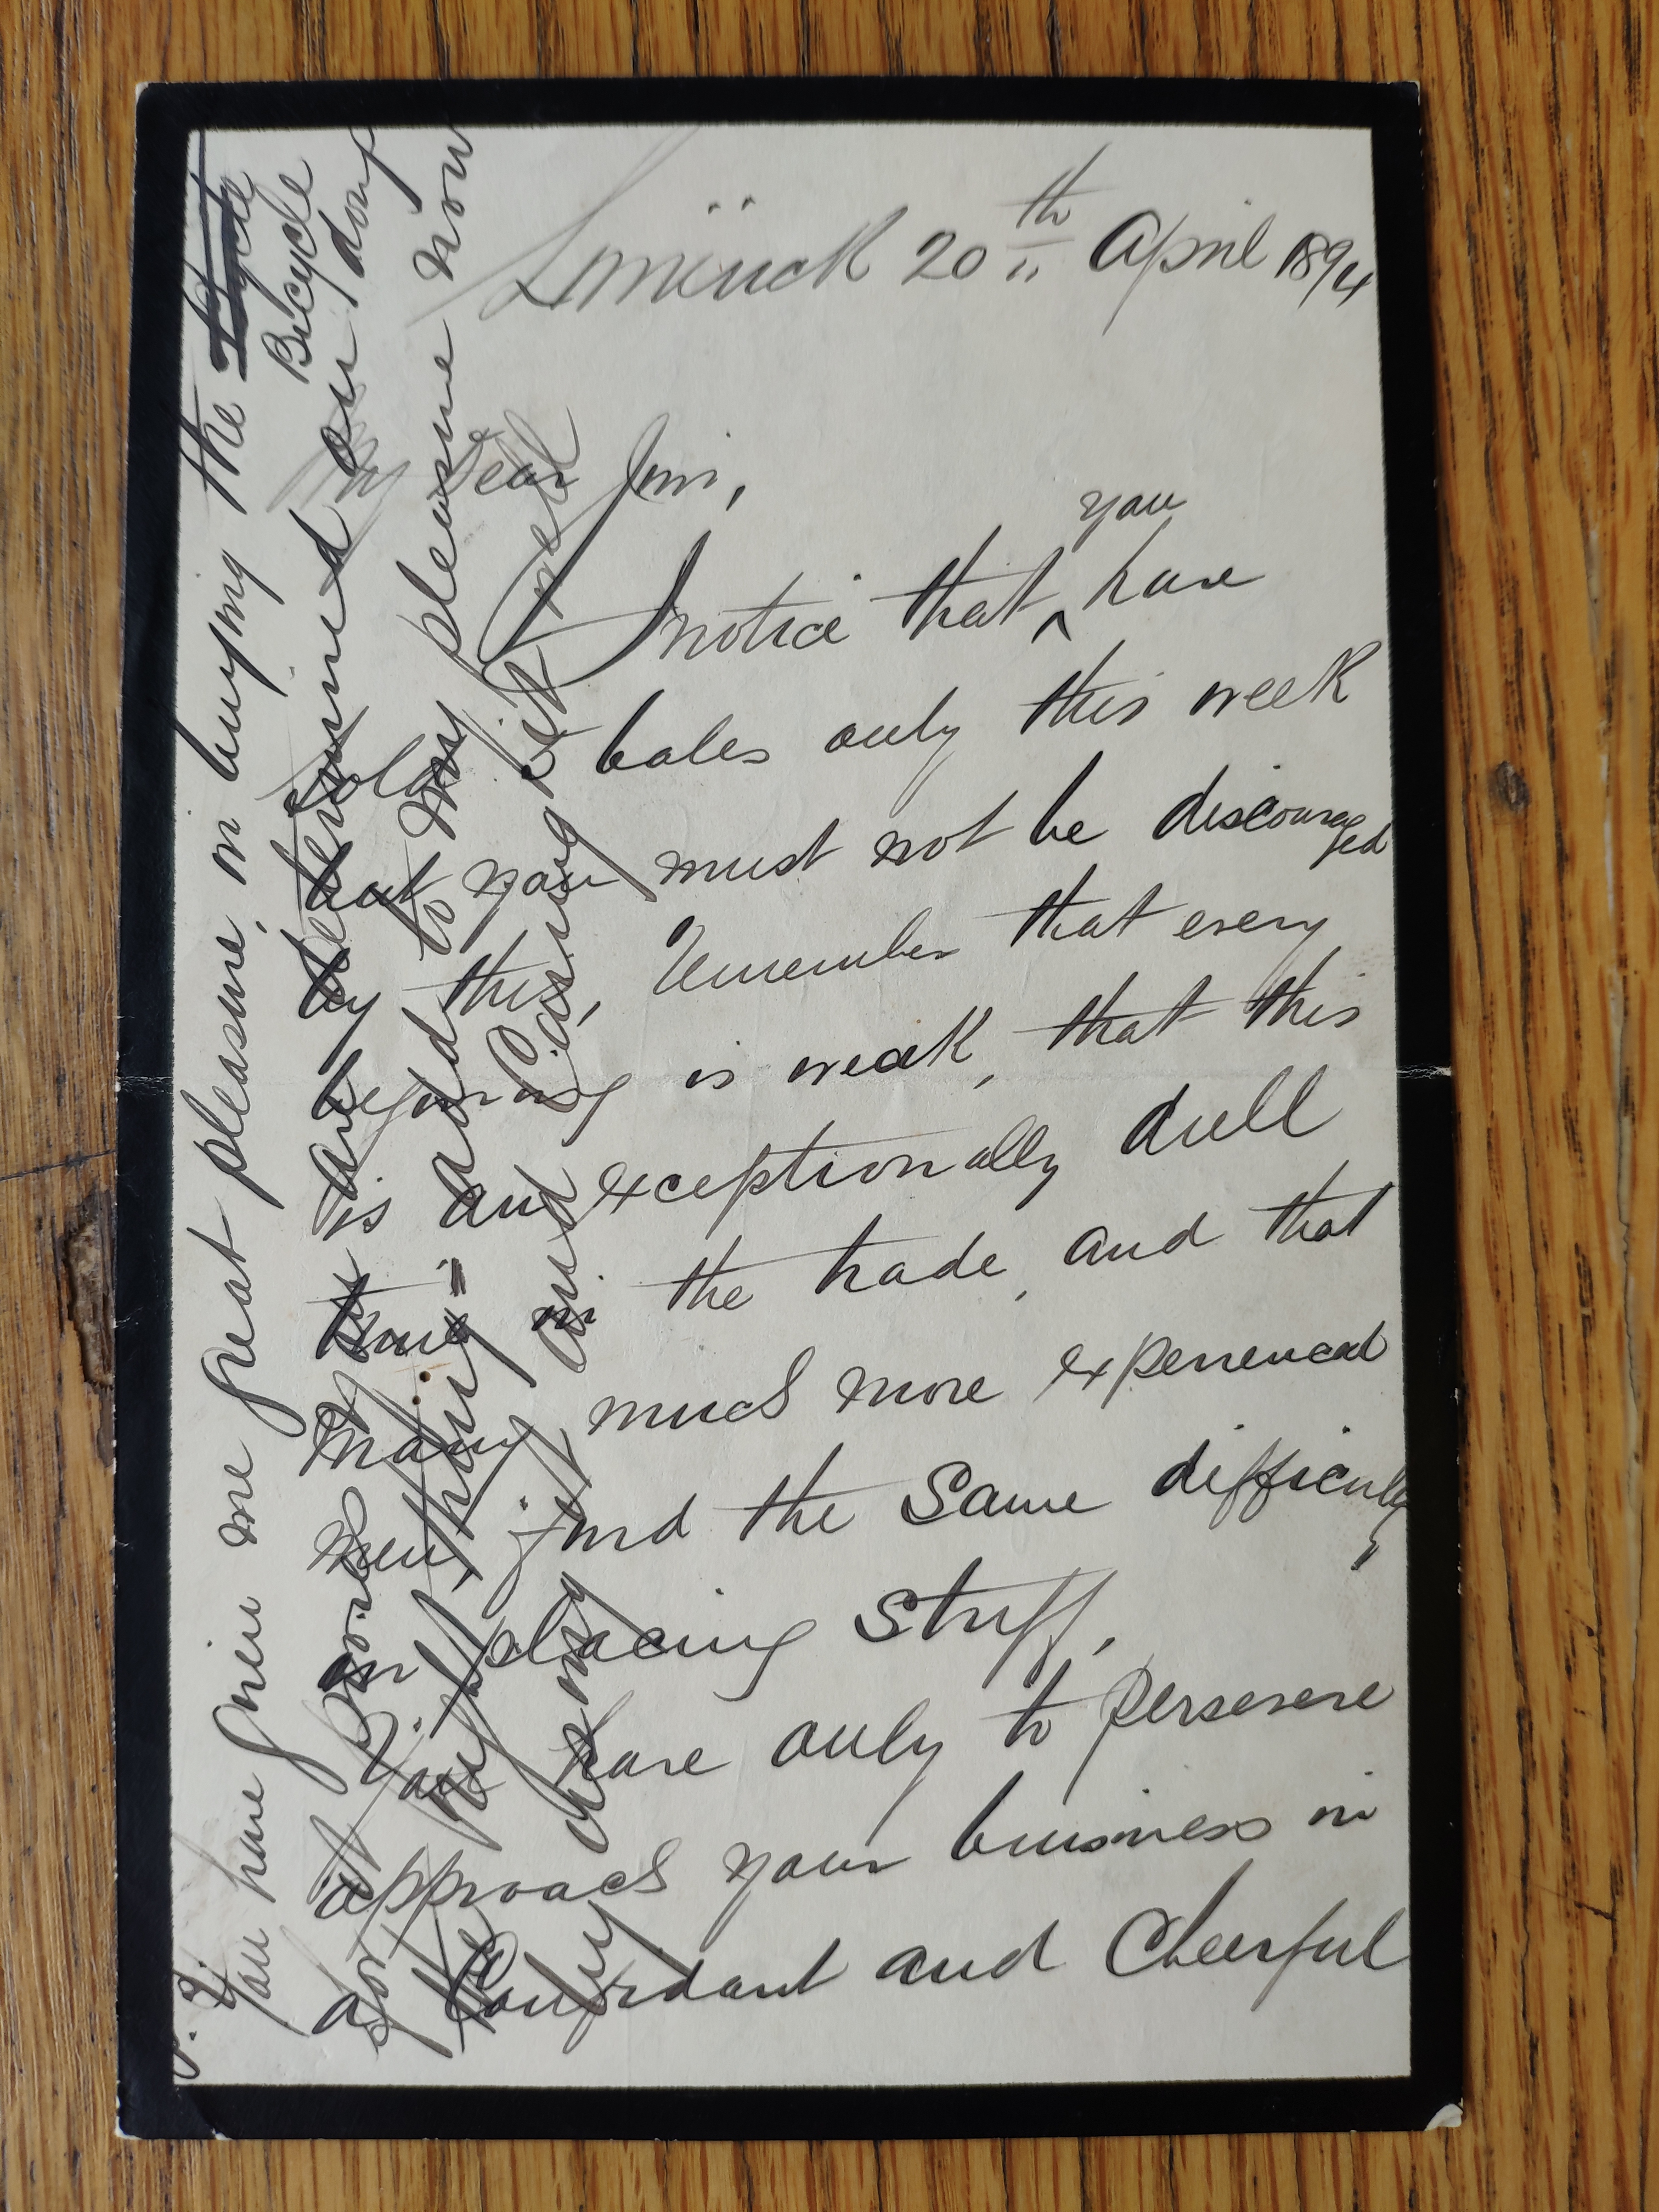 Limerick 20th April 1894
My Dear Jim,
I notice that you have
sold 5 bales only this week
but you must not be discouraged
by this, Remember that every
beginning is weak, that this
is an exceptionally dull
time in the trade, and that
many much more experienced
men, find the same difficulty
in placing stuff.
You have only to persevere
approach your business in
a Confident and Cheerful
You have given me great pleasure, in buying the
Bicycle
for it proved you are determined on doing
the right thing and to my pleasure now
and using it well